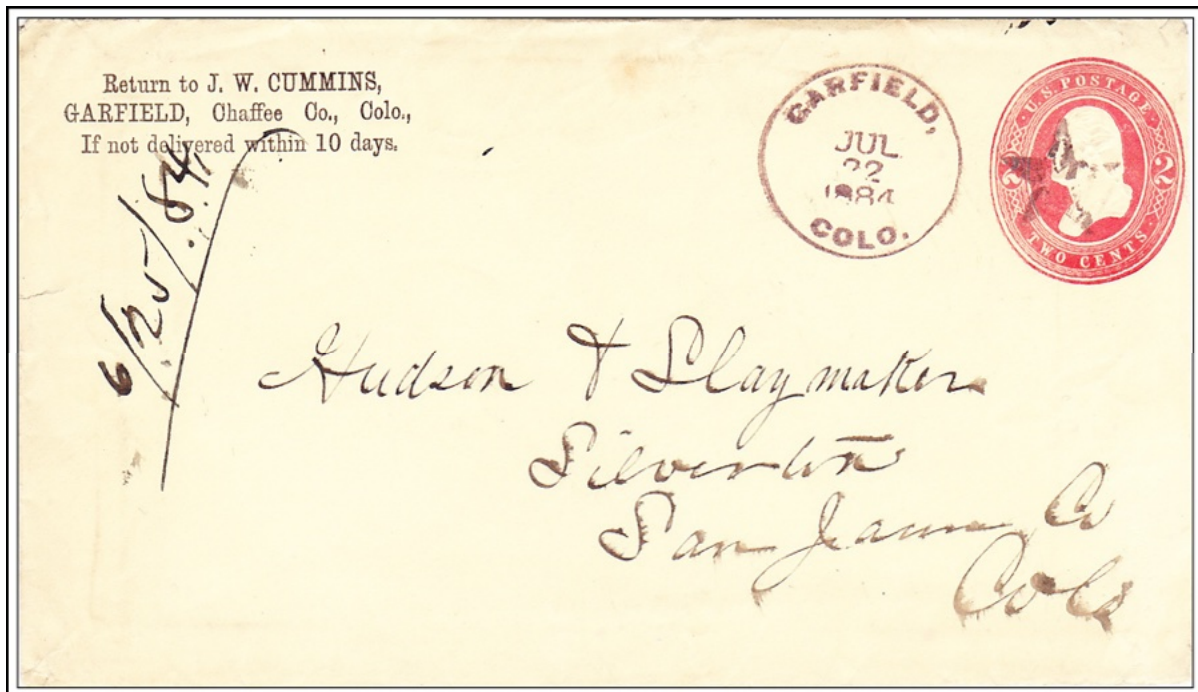 Return to J. W. CUMMINS,
GARFIELD, Chaffee Co., Colo.,
If not delivered within 10 days.
GARFIELD,
JUL
22
1884
COLO.
U.S. POSTAGE
2 2
TWO CENTS.
6/20/.84
Hudson & Slaymaker
Silverton
San Juan Co
Colo